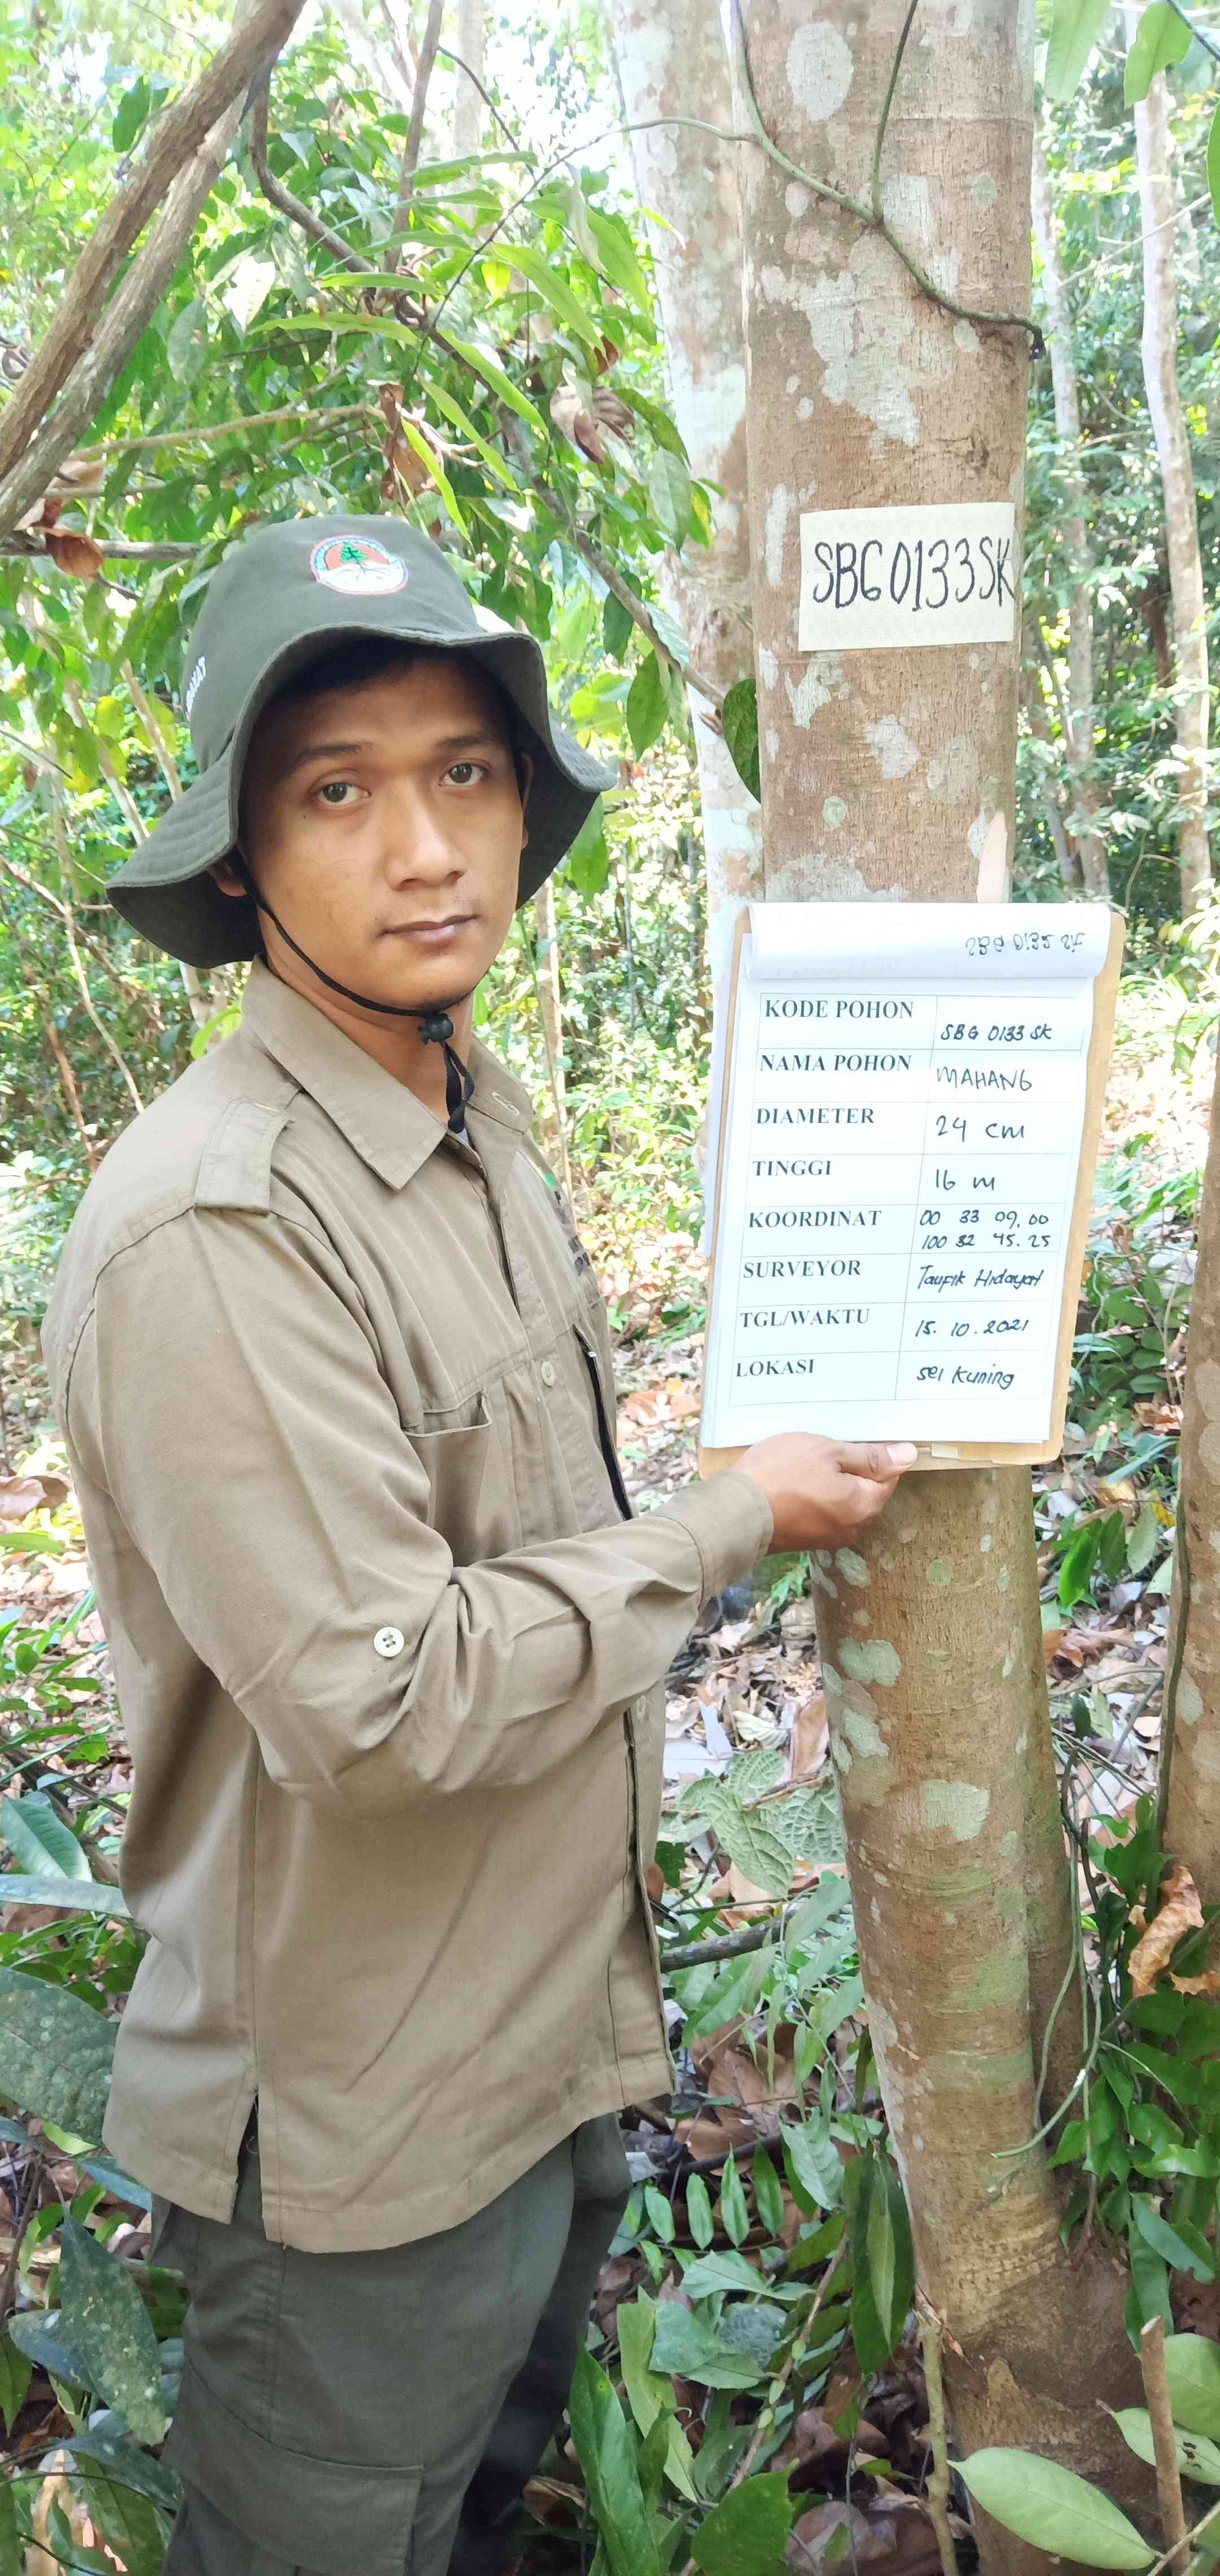 SBG0133SK
KODE POHON SBG 0133 SK
NAMA POHON MAHANG
DIAMETER 24 cm
TINGGI 16 m
KOORDINAT 00 33 09,00
100 32 45.25
SURVEYOR Taufik Hidayat
TGL/WAKTU 15.10.2021
LOKASI sei kuning